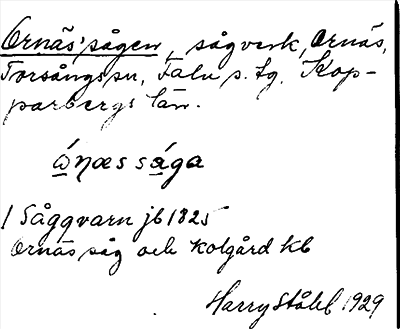 Ornässågen, sågverk, Ornäs,
Torsångs sn, Falu s. tg. Kop-
parbergs län.
ώηæs sága
1 Sågqvarn jb 1825
Ornäs såg och kolgård kb
Harry Ståhl 1929